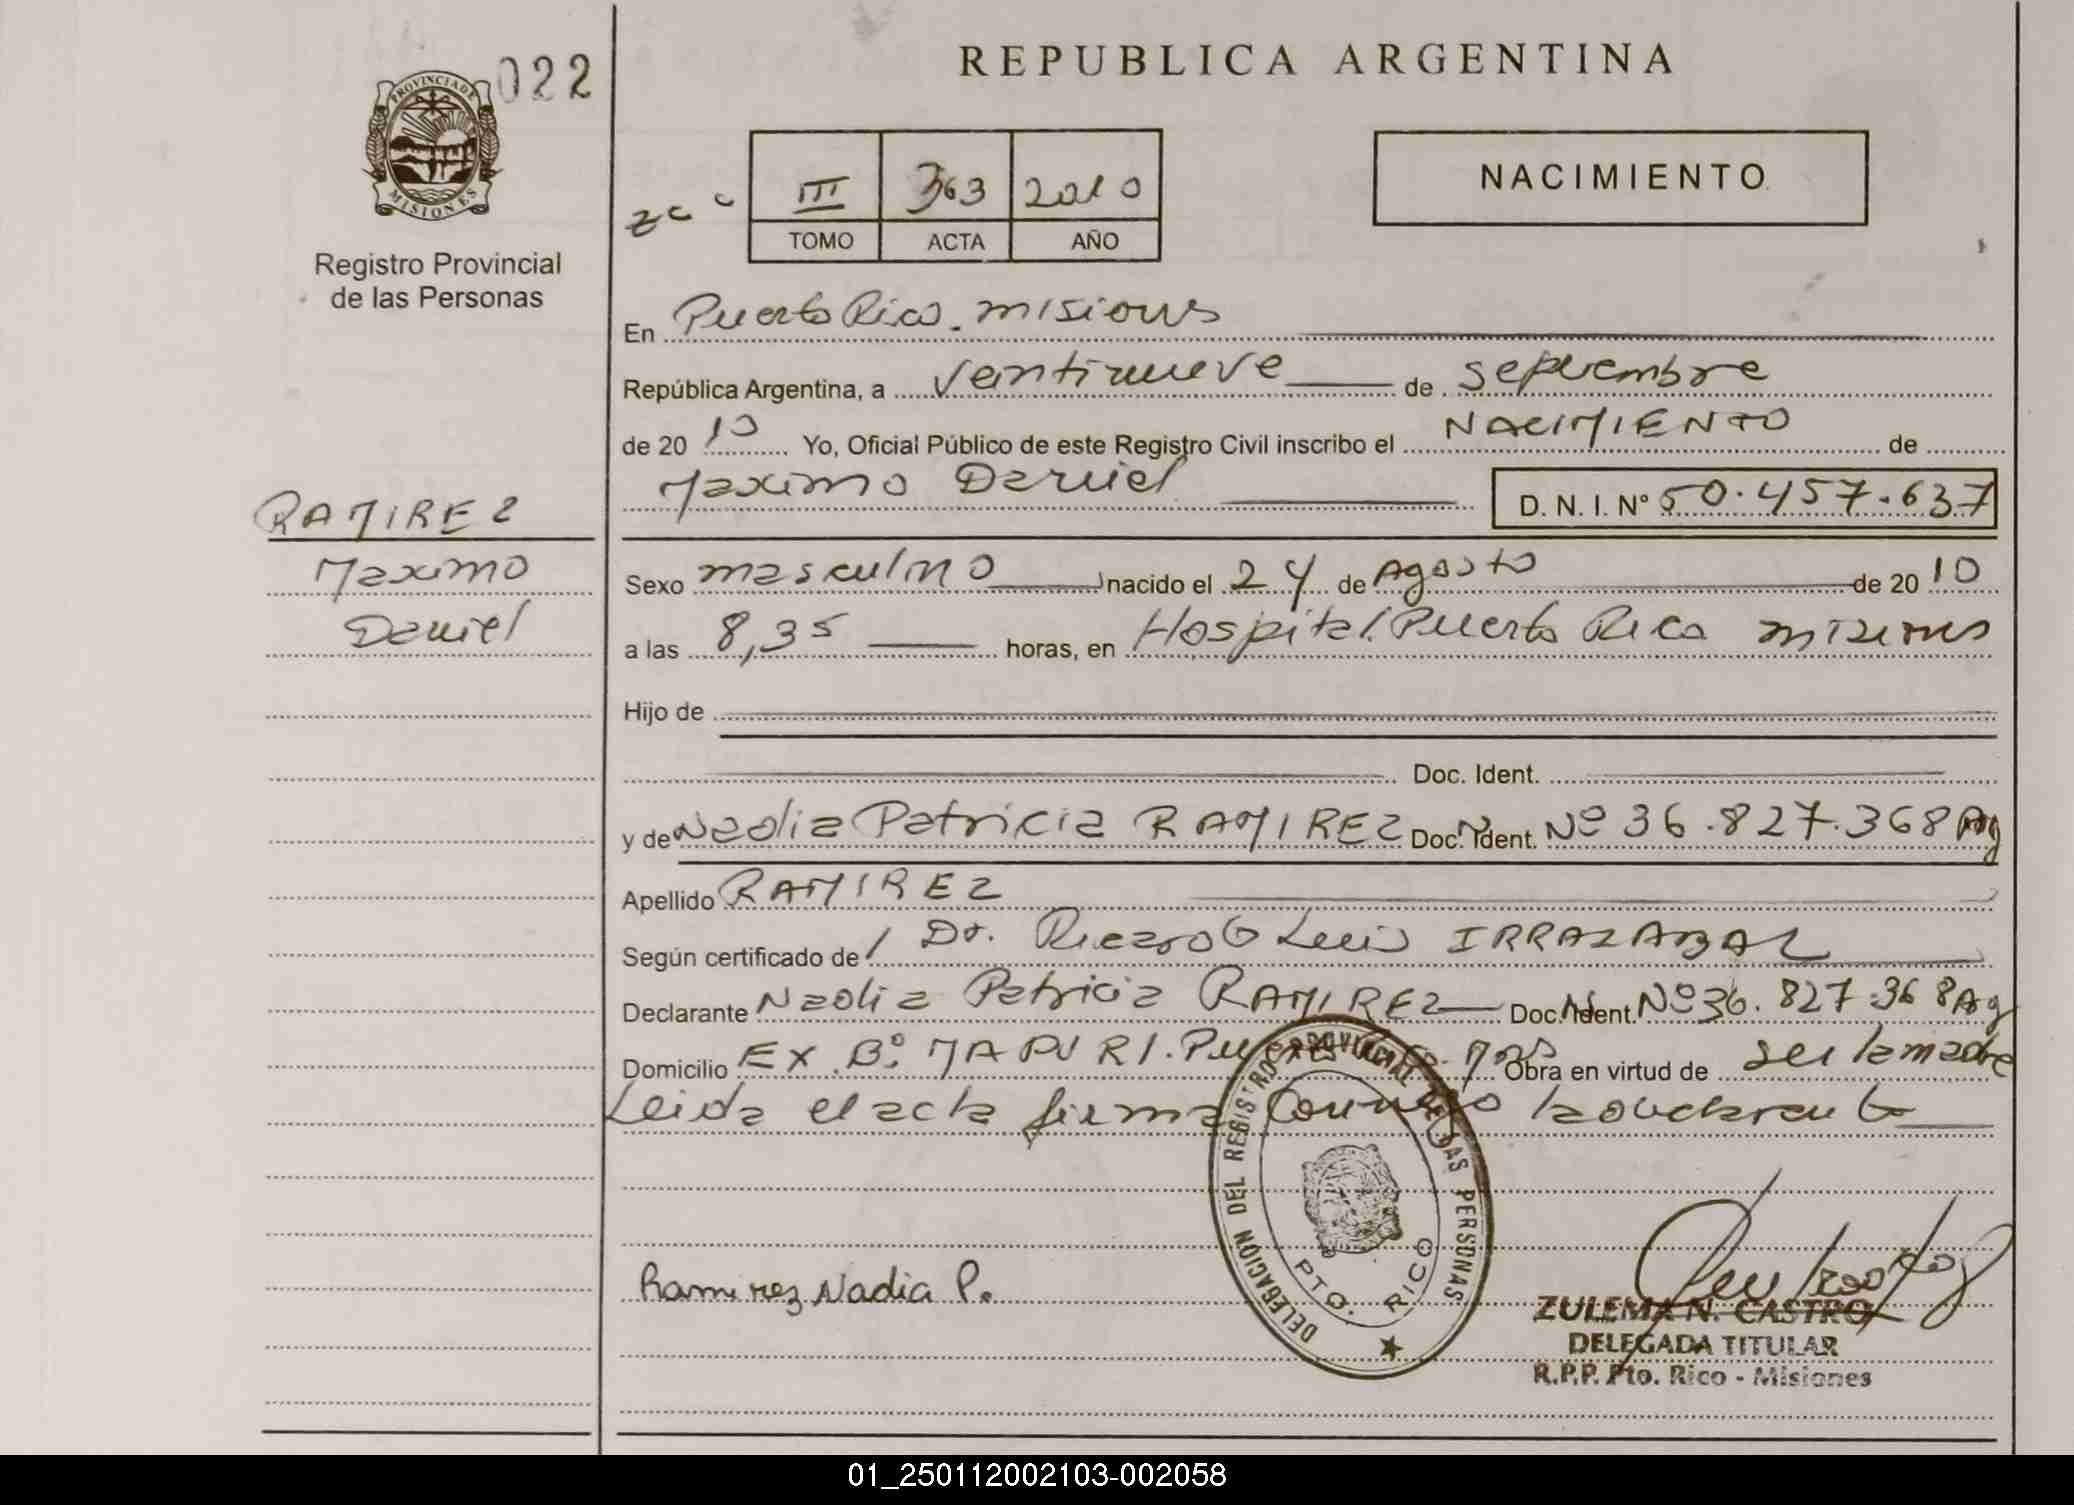 REPUBLICA ARGENTINA
022
PROVINCIA DE
MISIONES
Registro Provincial
de las Personas
III 363 2010
TOMO ACTA AÑO
NACIMIENTO
En Puerto Rico. misiones
República Argentina, a veintinueve de septiembre
de 2010 Yo, Oficial Público de este Registro Civil inscribo el NACIMIENTO de
Maximo Daniel D. N. I. Nº 50.457.637
RAMIREZ
Maximo
Daniel
Sexo masculino nacido el 24 de Agosto de 2010
a las 8,35 horas, en Hospital. Puerto Rico misiones
Hijo de
Doc. Ident.
y de Nadia Patricia RAMIREZ Doc. Ident. Nº 36.827.368 Ag
Apellido RAMIREZ
Según certificado de Dr. Ricardo Luis IRRAZABAL
Declarante Nadia Patricia RAMIREZ Doc. Ident. Nº 36.827.368 Ag
Domicilio EX. Bº. Obra en virtud de ser la madre
Leida el acta firma conmigo la declarante
DELEGACION DEL REGISTRO PROVINCIAL DE LAS PERSONAS
PTO. RICO
Ramirez Nadia P.
ZULEMA N. CASTRO
DELEGADA TITULAR
R.P.P. Pto. Rico - Misiones
01_250112002103-002058